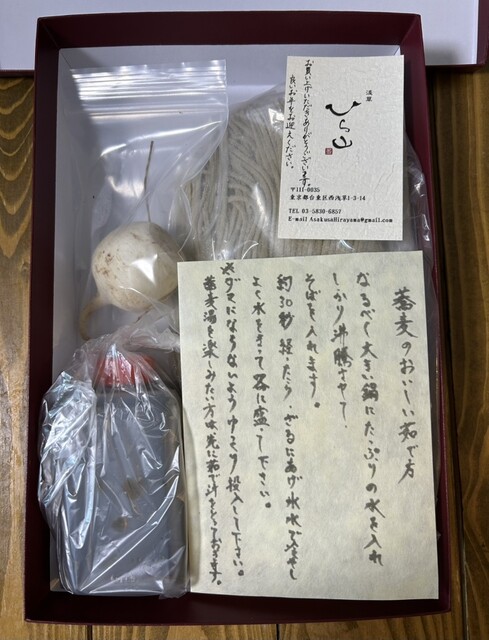 お買い上げいただきありがとうございます。
良いお年をお迎えください。
浅草
ひら山
〒111-0035
東京都台東区西浅草1-3-14
TEL 03-5830-6857
E-mail AsakusaHirayama@gmail.com
蕎麦のおいしい茹で方
なるべく大きい鍋にたっぷりの水を入れ
しっかり沸騰させて、
そばを入れます。
約30秒経ったら、ざるにあげ氷水で冷やし
よく水をきって器に盛って下さい。
※ダマにならないようゆっくり投入して下さい。
蕎麦湯を楽しみたい方は先に茹で汁をとっておきます。